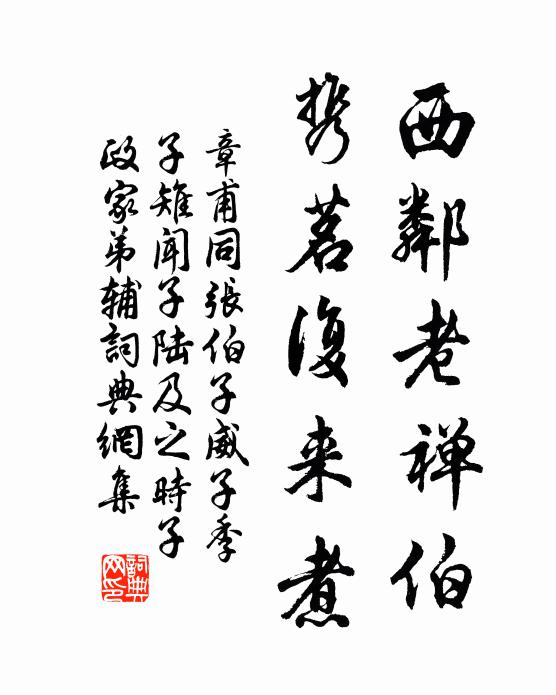 西鄰老禅伯
携茗復来煮
章甫同張伯子威子季
子雉聞子陆及之時子
政家弟辅詞典網集
詞典
网印